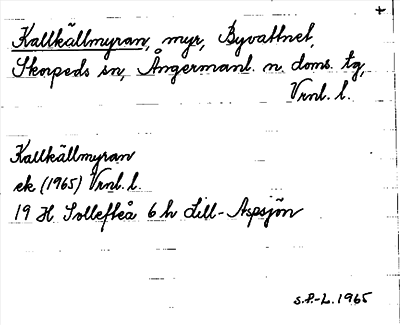 +
Kallkällmyran, myr, Byvattnet,
Skorpeds sn, Ångermanl. n. doms. tg,
Vrnl. l.
Kallkällmyran
ek (1965) Vrnl. l.
19 H Sollefteå 6 h Lill-Aspsjön
S.P.-L. 1965